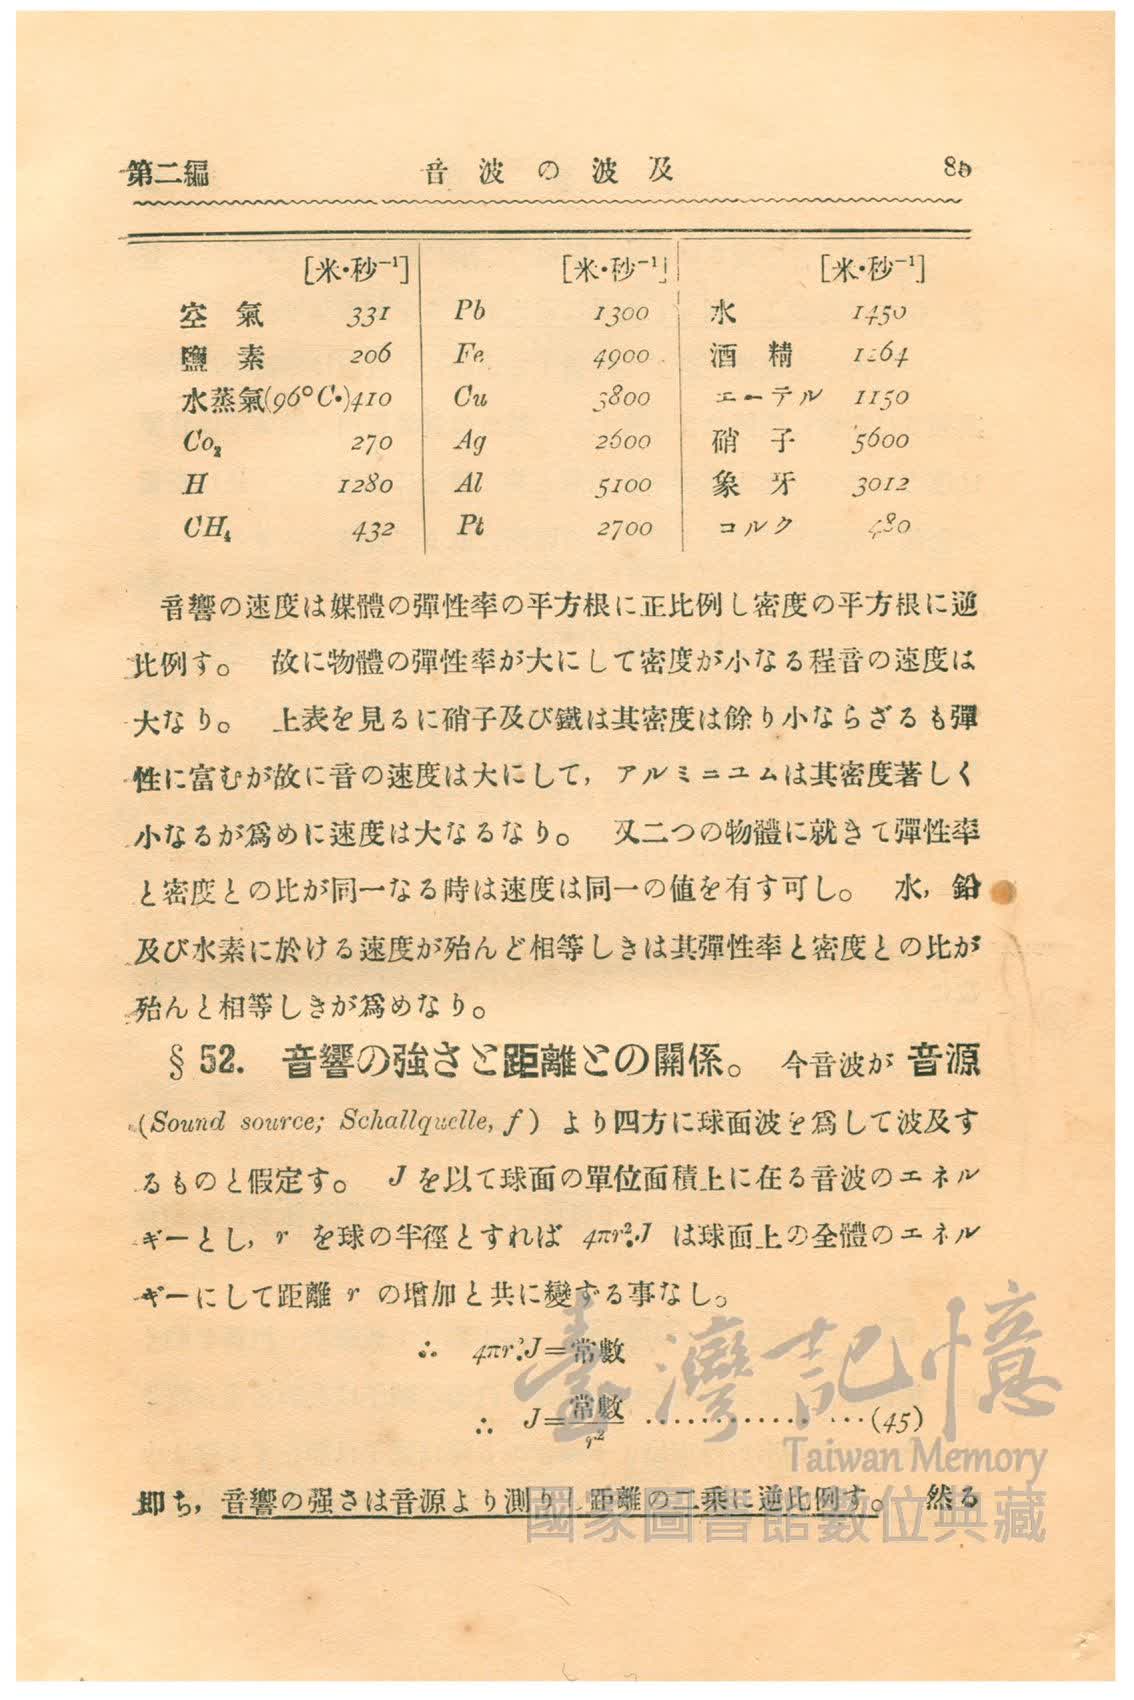 第二編 音波の波及 85
[米·秒⁻¹] [米·秒⁻¹] [米·秒⁻¹]
空氣 331 Pb 1300 水 1450
鹽素 206 Fe 4900 酒精 1264
水蒸氣(96°C.)410 Cu 3800 エーテル 1150
Co₂ 270 Ag 2600 硝子 5600
H 1280 Al 5100 象牙 3012
CH₄ 432 Pt 2700 コルク 480
音響の速度は媒體の彈性率の平方根に正比例し密度の平方根に逆
比例す。 故に物體の彈性率が大にして密度が小なる程音の速度は
大なり。 上表を見るに硝子及び鐵は其密度は餘り小ならざるも彈
性に富むが故に音の速度は大にして, アルミニユムは其密度著しく
小なるが爲めに速度は大なるなり。 又二つの物體に就きて彈性率
と密度との比が同一なる時は速度は同一の値を有す可し。 水, 鉛
及び水素に於ける速度が殆んど相等しきは其彈性率と密度との比が
殆んと相等しきが爲めなり。
§ 52. 音響の強さと距離との關係。 今音波が 音源
(Sound source; Schallquelle, f) より四方に球面波を爲して波及す
るものと假定す。 J を以て球面の單位面積上に在る音波のエネル
ギーとし, r を球の半徑とすれば 4πr².J は球面上の全體のエネル
ギーにして距離 r の增加と共に變ずる事なし。
∴ 4πr².J=常數
∴ J=常數/r² ……………(45)
即ち, 音響の强さは音源より測りし距離の二乘に逆比例す。 然る
臺灣記憶
Taiwan Memory
國家圖書館數位典藏